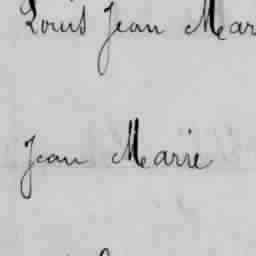 Louis Jean Mar
Jean Marie